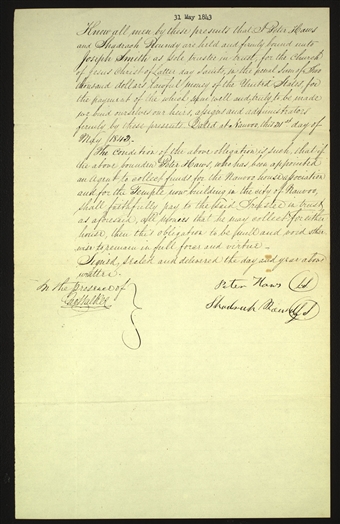 31 May 1843
Know all men by these presents that I Peter Haws
and Shadrach Roundy are held and firmly bound unto
Joseph Smith as Sole trustee in trust, for the Church
of Jesus Christ of Latter day Saints, in the penal Sum of two
thousand dollars lawful money of the United States, for
the payment of the which sum well and truly to be made
we bind ourselves our heirs, assigns and administrators
firmly by these presents. Dated at Nauvoo, this 31st day of
May 1843.
The condition of the above obligation is such, that if
the above bounden Peter Haws, who has been appointed
an agent to collect funds for the Nauvoo house association
and for the Temple now building in the city of Nauvoo,
shall faithfully pay to the said Trustee in trust
as aforesaid, all monies that he may collect for either
house, then this obligation to be null and void other
wise to remain in full force and virtue.
Signed, sealed and delivered the day and year above
written.
In the presence of
Peter Haws
Shadrach